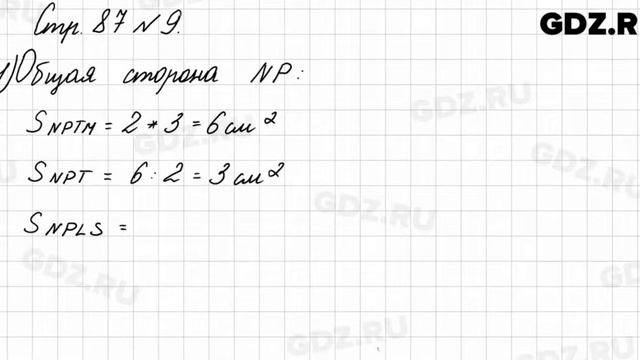 Стр. 87 №9.
GDZ.R
1) Общая сторона NP:
S NPTM = 2 * 3 = 6 см²
S NPT = 6 : 2 = 3 см²
S NPLS =
GDZ.RU
GDZ.RU
GDZ.RU
GDZ.RU
GDZ.RU
GDZ.RU